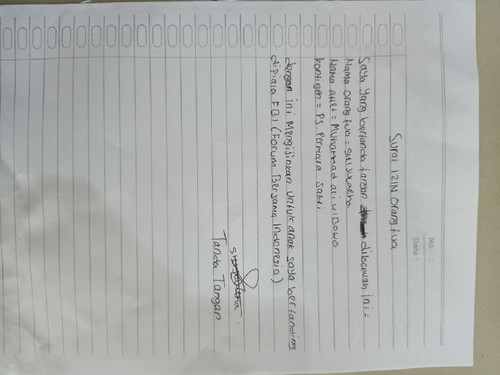 No. :
Date :
Surat IZIN Orang tua
Saya yang bertanda tangan dibawah ini =
Nama orang tua =
Nama atlet = Muhammad ari wibowo
Kontigen = PS. Permata Sakti
dengan ini Mengizinkan Untuk anak saya bertanding
dipiala FBI (Forum Bersama Indonesia)
Tanda Tangan